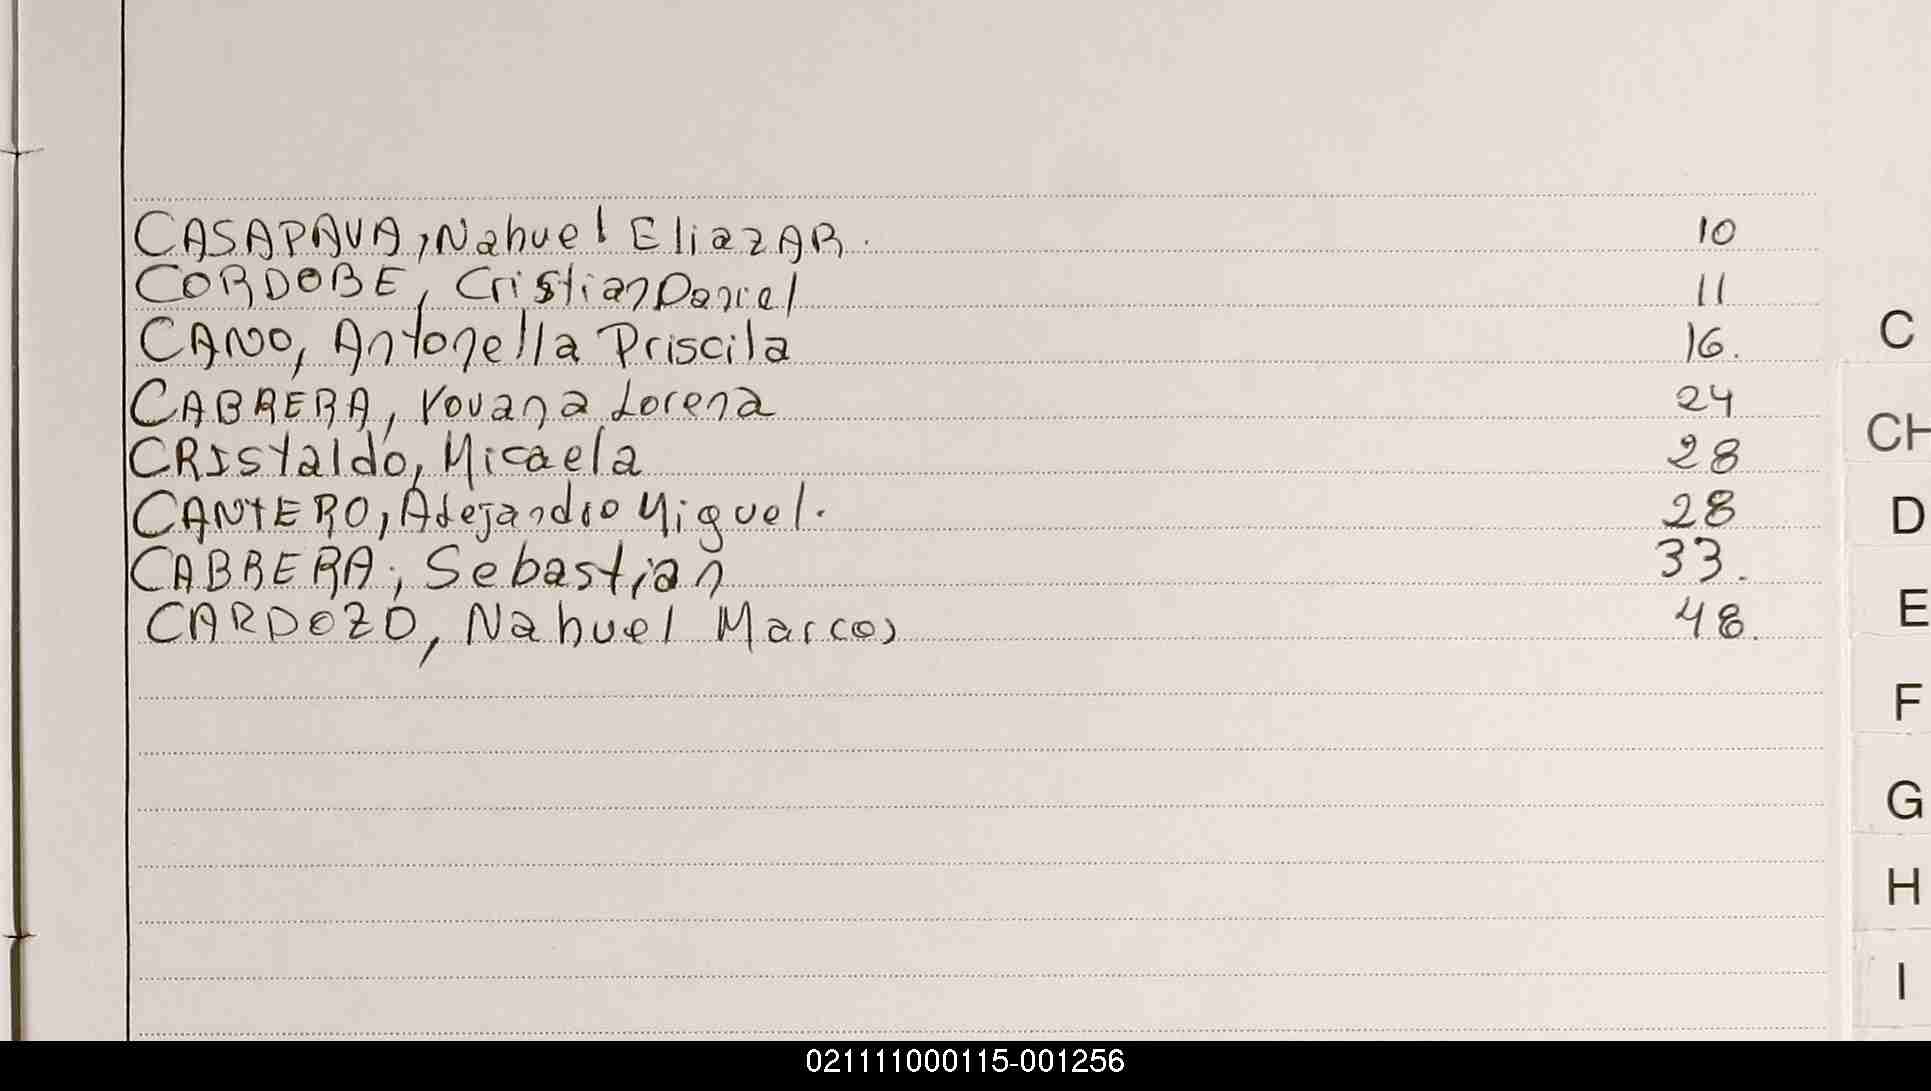 CASAPAVA, Nahuel EliazAR. 10
CORDOBE, Cristian Daniel 11
CANO, Antonella Priscila 16.
CABRERA, Yovana Lorena 24
CRIStaldo, Micaela 28
CANTERO, Alejandro Miguel. 28
CABRERA, Sebastian 33.
CARDOZO, Nahuel Marcos 48.
C
CH
D
E
F
G
H
I
021111000115-001256